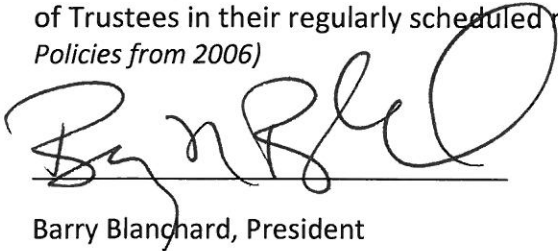 of Trustees in their regularly scheduled
Policies from 2006)
Barry Blanchard, President